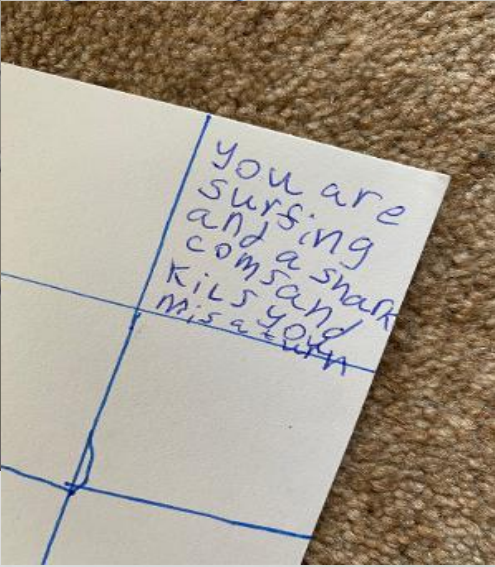 you are
surfing
and a shark
coms and
kils you
mis a turn